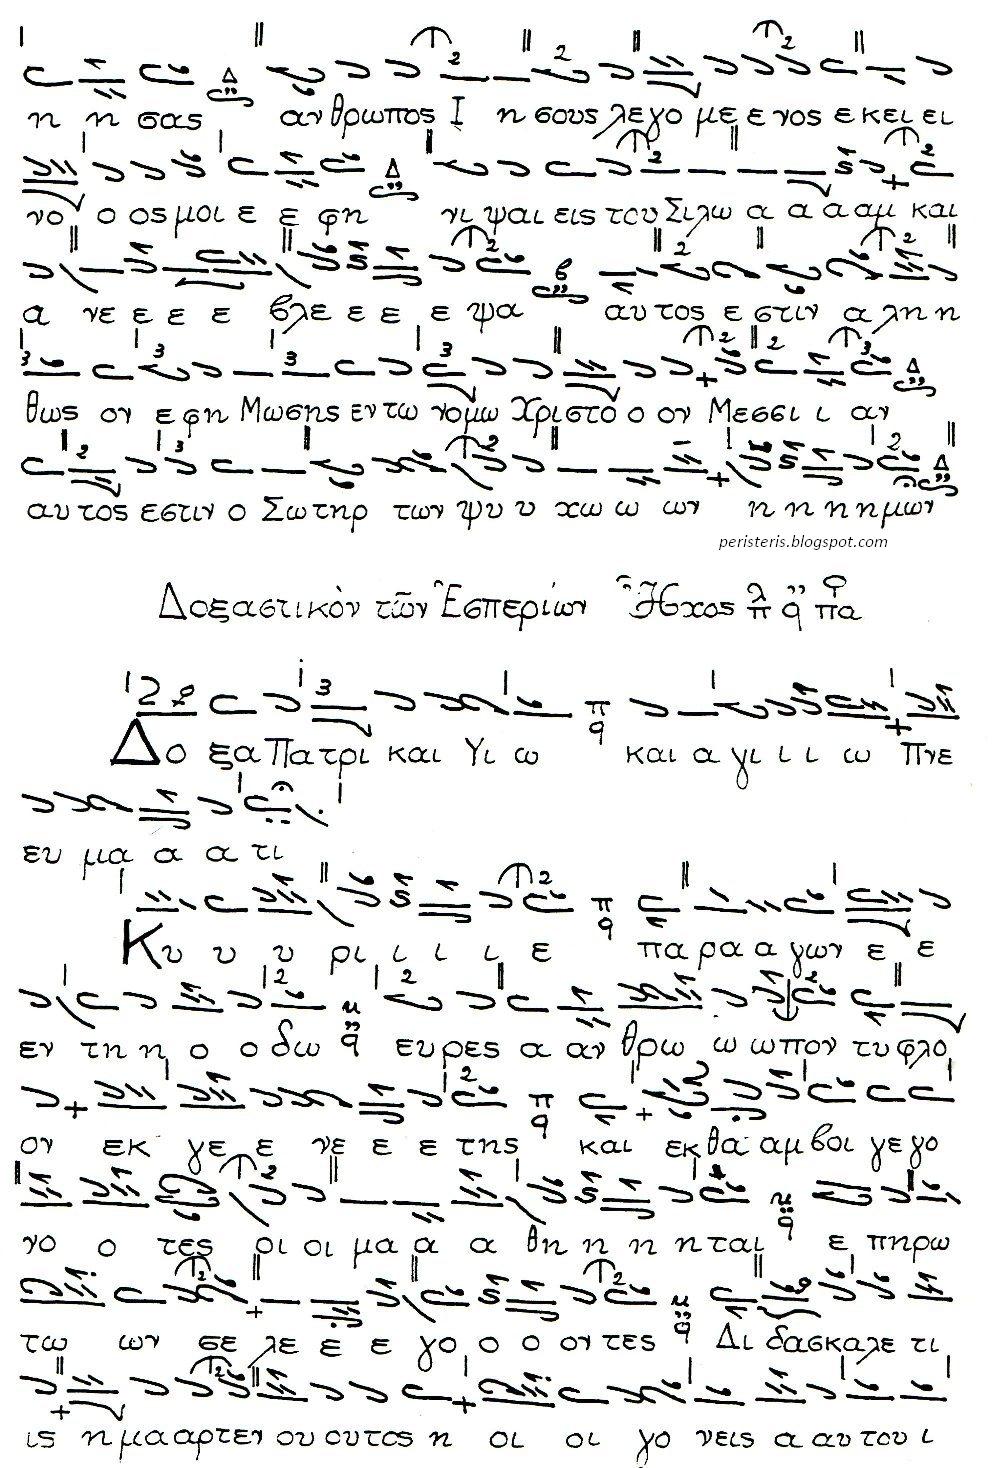 η η σας ανθρωπος Ι η σους λεγο με ε νος ε κει ει
νο ο ος μοι ε ε φη νι ψαι εις του Σιλω α α α αμ και
α νε ε ε ε βλε ε ε ε ψα αυτος ε στιν α λη η
θως ον ε φη Μωσης εν τω νομω Χριστο ο ον Μεσσι ι αν
αυτος εστιν ο Σωτηρ των ψυ υ χω ω ων η η η ημων
peristeris.blogspot.com
Δοξαστικὸν τῶν Ἑσπερίων Ἦχος λ π q πα
Δο ξα Πα τρι και Υι ω και α γι ι ι ω Πνε
ευ μα α α τι
Κυ υ υ ρι ι ι ι ε πα ρα α γων ε ε
εν τη η ο ο δω ευρες α αν θρω ω ωπον τυ φλο
ον εκ γε ε νε ε ε της και εκ θα αμβοι γεγο
νο ο τες οι οι μα α α θη η η η ται ε πηρω
τω ων σε λε ε ε γο ο ο οντες Δι δασκαλε τι
ις η μα αρτεν ου ουτος η οι οι γο νεις α αυ του ι